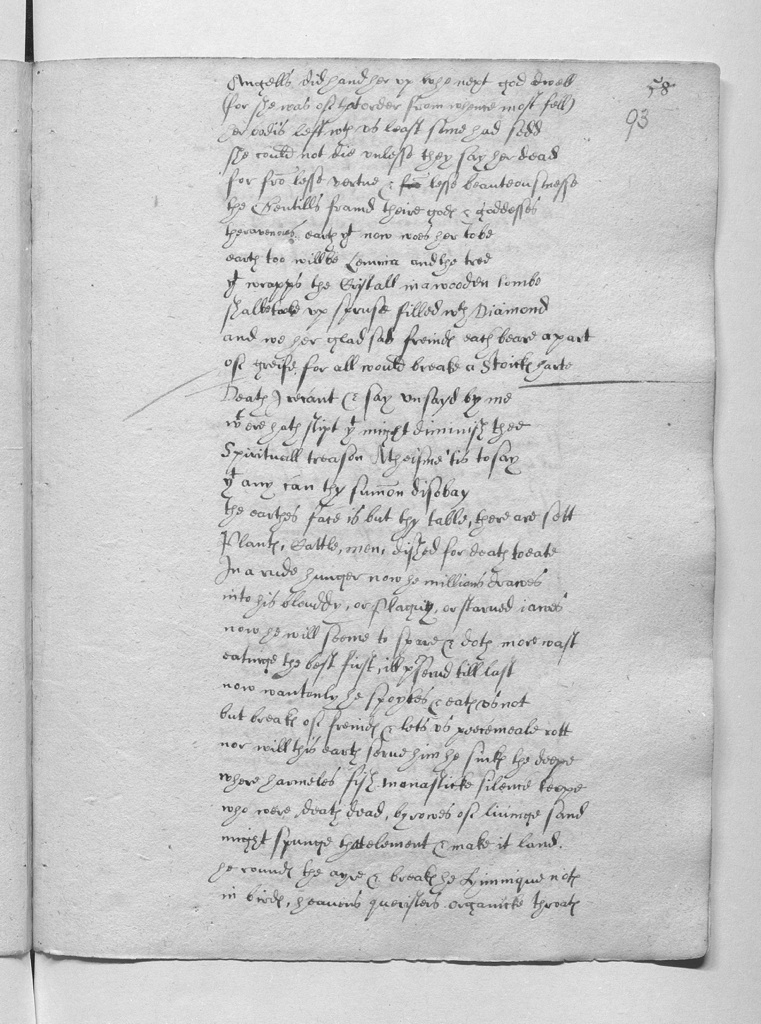 58
93
Angells did hand her vp who next god dwell
(for she was of that order from whence most fell)
her bodis left wth vs least some had sedd
she could not die vnlesse they say her dead
for frō lesse vertue & lesse beauteousnesse
the Gentills framd theire gods & goddesses
the ravenous earth yt now woes her to be
earth too wilbe Lemnia and the tree
yt wrapps the Cristall in a wooden tombe
shalbe tooke vp spruse filled wth Diamond
and we her glad sad freinds each beare a part
of greife, for all would breake a Stoicks harte
Death I recant & say vnsayd by me
wt ere hath slipt yt might diminish thee
Spirituall treason Atheisme 'tis to say
yt any can thy sumon disobay
the earthes face is but thy table, there are sett
Plants, Cattle, men, dished for death to eate
In a rude hunger now he millions drawes
into his blouddy, or Plaguy, or starued iawes
now he will seeme to spare & doth more wast
eatinge the best first, ill pserud till last
now wantonly he spoyles & eats vs not
but breaks of freinds & lets vs peecemeale rott
nor will this earth serue him he sinks the deepe
where harmeles fish monasticke silence keepe
who were death dead, by rowes of liuinge sand
might spunge that element & make it land.
he rounds the ayre & breaks he Hymnique nots
in birds, heauens queristers organicke throats